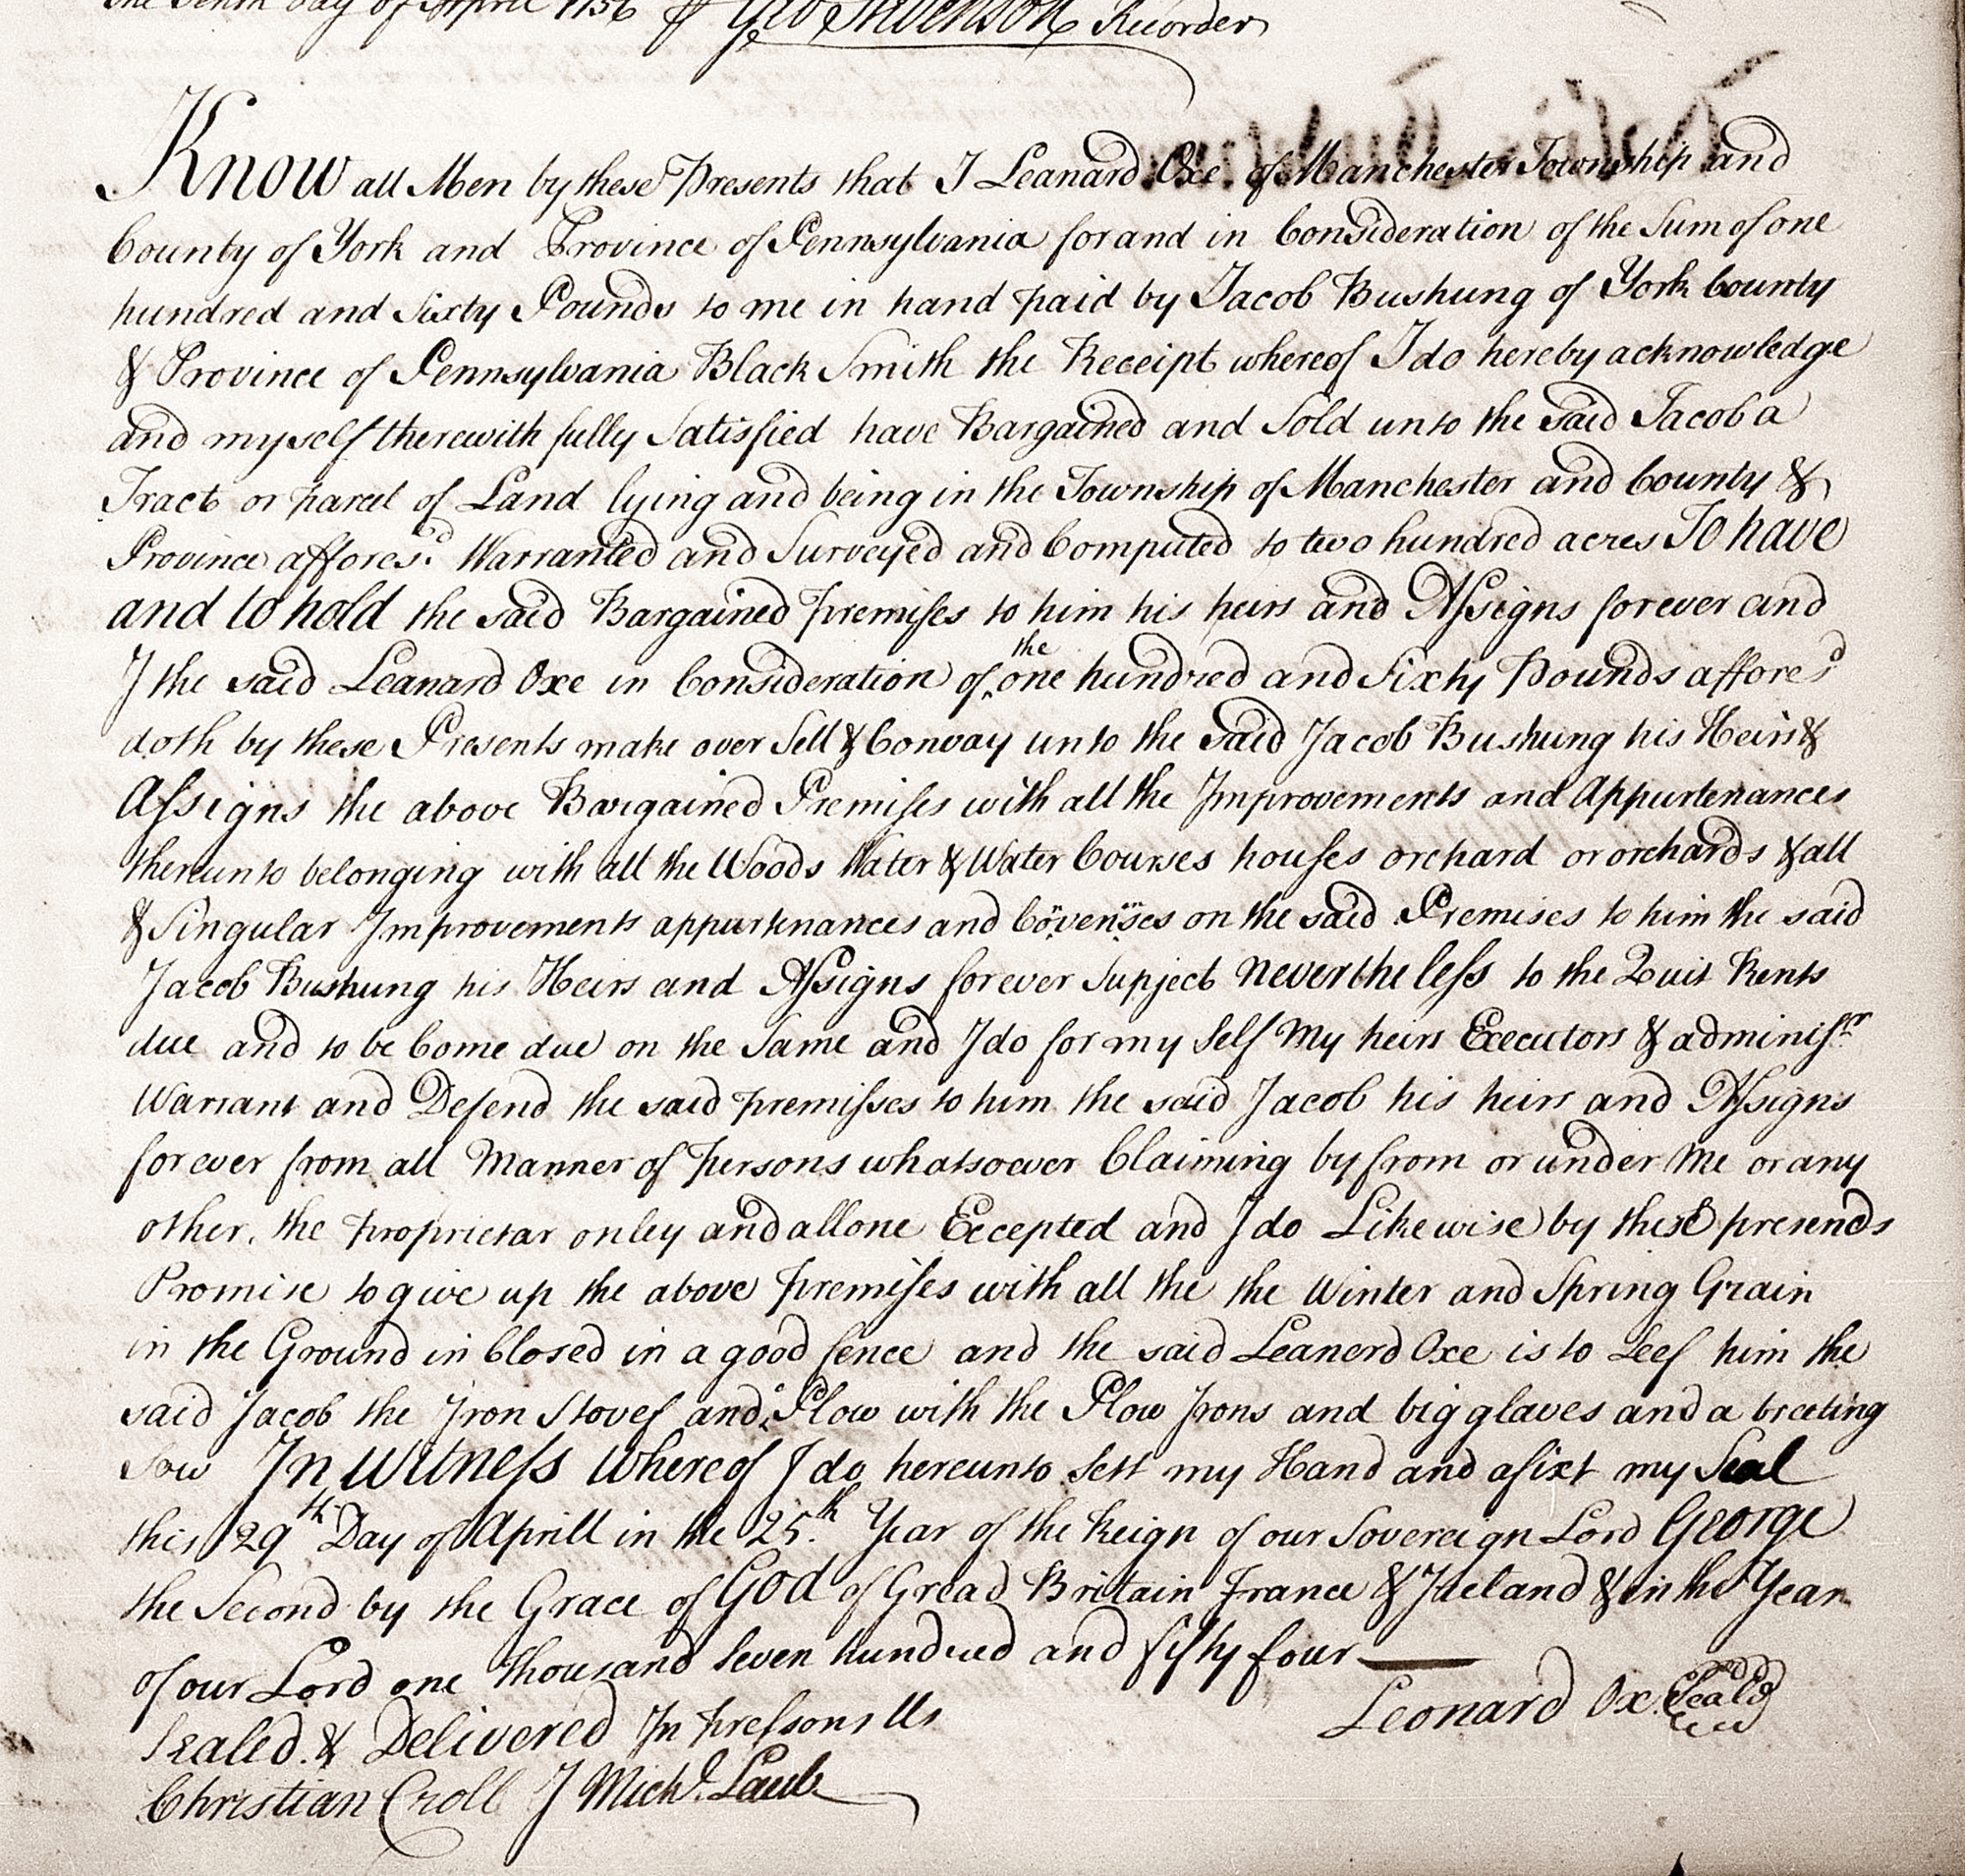 the tenth day of April 1756 Geo Stevenson Recorder
Know all Men by these Presents that I Leanard Oxe of Manchester Township and
County of York and Province of Pennsylvania for and in Consideration of the Sum of one
hundred and Sixty Pounds to me in hand paid by Jacob Bushung of York County
& Province of Pennsylvania Black Smith the Receipt whereof I do hereby acknowledge
and myself therewith fully Satisfied have Bargained and Sold unto the said Jacob a
Tract or parcel of Land lying and being in the Township of Manchester and County &
Province affores.d Warranted and Surveyed and Computed to two hundred acres To have
and to hold the said Bargained premises to him his heirs and Assigns forever and
I the said Leanard Oxe in Consideration of the one hundred and Sixty Pounds affores.d
doth by these Presents make over Sell & Convay unto the said Jacob Bushung his Heirs &
Assigns the above Bargained Premises with all the Improvements and Appurtenances
thereunto belonging with all the Woods Water & Water Courses houses orchard or orchards & all
& Singular Improvements appurtenances and Covenses on the said Premises to him the said
Jacob Bushung his Heirs and Assigns forever Supject nevertheless to the Quit Rents
due and to be Come due on the Same and I do for my Self My heirs Executors & administ.rr
Warrant and Defend the said premisses to him the said Jacob his heirs and Assigns
forever from all Manner of persons whatsoever Claiming by from or under Me or any
other, the proprietar onley and allone Excepted and I do Likewise by these presends
Promise to give up the above premises with all the the Winter and Spring Grain
in the Ground in Closed in a good fence and the said Leanerd Oxe is to Leef him the
said Jacob the Iron Stovef and Plow with the Plow Irons and big glaves and a breeting
Sow In Witness whereof I do hereunto Sett my Hand and afixt my Seal
this 29th Day of Aprill in the 25th Year of the Reign of our Sovereign Lord George
the Second by the Grace of God of Gread Britain France & Ireland & in the Year
of our Lord one thousand Seven hundred and fifty four
Leonard Ox Seal
Sealed & Delivered In pressons Us
Christian Croll J Mich.l Laub